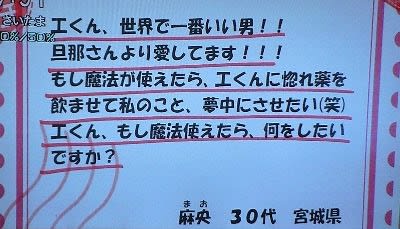 さいたま
0%/50%
工くん、世界で一番いい男!!
旦那さんより愛してます!!!
もし魔法が使えたら、工くんに惚れ薬を
飲ませて私のこと、夢中にさせたい(笑)
工くん、もし魔法使えたら、何をしたい
ですか?
まお
麻央 30代 宮城県